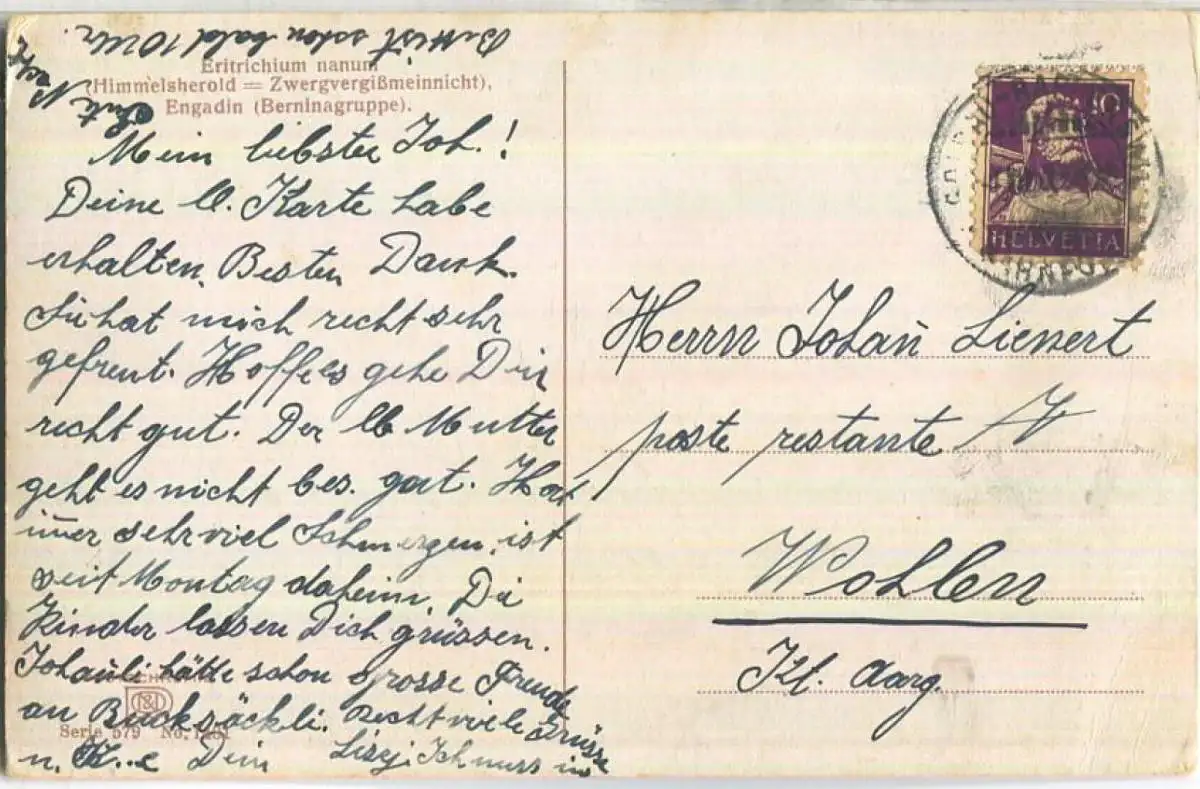 Eritrichium nanum
(Himmelsherold = Zwergvergißmeinnicht),
Engadin (Berninagruppe).
Mein liebster Joh.!
Deine lb. Karte habe
erhalten. Besten Dank.
Sie hat mich recht sehr
gefreut. Hoffe es gehe Dir
recht gut. Der lb Mutter
geht es nicht bes. gut. Hat
im̄er sehr viel Schmerzen, ist
seit Montag daheim. Die
Kinder lassen Dich grüssen.
Johanli hätte schon grosse Freude
an Rucksäckli. Recht viele Grüsse
u. K...e Dein Liszi. Ich muss ins
Bett ist schon bald 10 Uhr.
Gute Nacht
Serie 579 No. 1251
10
HELVETIA
Herrn Johan̄ Lienert
poste restante
Wohlen
Kt. Aarg.